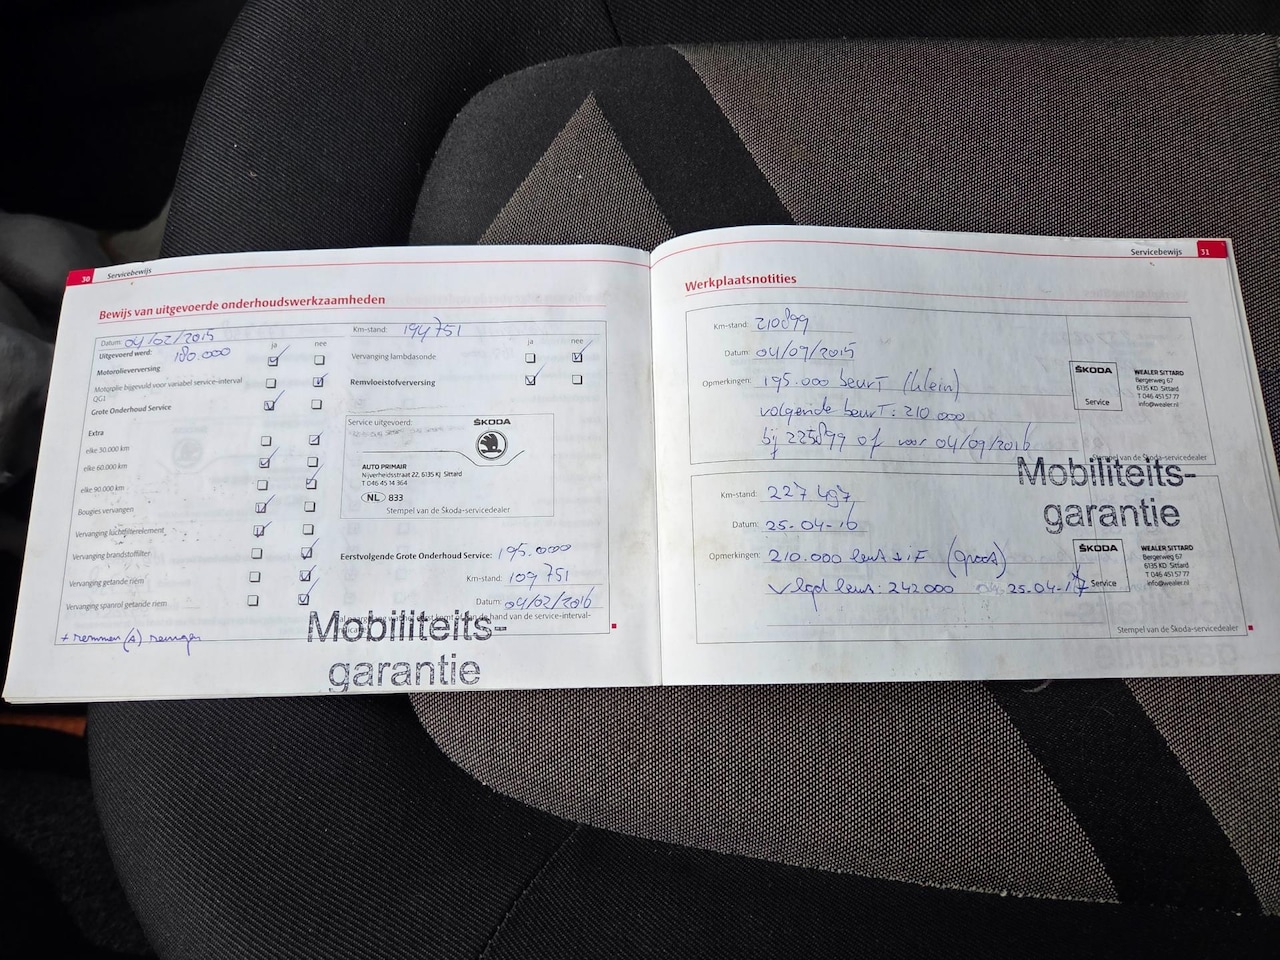 30 Servicebewijs
Bewijs van uitgevoerde onderhoudswerkzaamheden
Datum: 04/02/2015
Km-stand: 194751
Uitgevoerd werd: 180.000
ja nee
ja nee
Motorolieverversing
Vervanging lambdasonde
Motorolie bijgevuld voor variabel service-interval
QG1
Remvloeistofverversing
Grote Onderhoud Service
Extra
elke 30.000 km
elke 60.000 km
elke 90.000 km
Bougies vervangen
Vervanging luchtfilterelement
Vervanging brandstoffilter
Vervanging getande riem
Vervanging spanrol getande riem
+ remmen (A) reinigen
Service uitgevoerd:
ŠKODA
AUTO PRIMAIR
Nijverheidsstraat 22, 6135 KJ Sittard
T 046 45 14 364
NL 833
Stempel van de Škoda-servicedealer
Eerstvolgende Grote Onderhoud Service: 195.000
Km-stand: 109751
Datum: 04/02/2016
hand van de service-interval-
Mobiliteits-
garantie
Servicebewijs 31
Werkplaatsnotities
Km-stand: 210899
Datum: 04/09/2015
Opmerkingen: 195.000 beurt (klein)
volgende beurt: 210 000
bij 225899 of voor 04/09/2016
ŠKODA
Service
WEALER SITTARD
Bergerweg 67
6135 KD Sittard
T 046 451 57 77
info@wealer.nl
Stempel van de Škoda-servicedealer
Mobiliteits-
garantie
Km-stand: 227 497
Datum: 25-04-16
Opmerkingen: 210.000 beurt + iF (Groot)
Vlgd beurt: 242000 25-04-17
ŠKODA
Service
WEALER SITTARD
Bergerweg 67
6135 KD Sittard
T 046 451 57 77
info@wealer.nl
Stempel van de Škoda-servicedealer